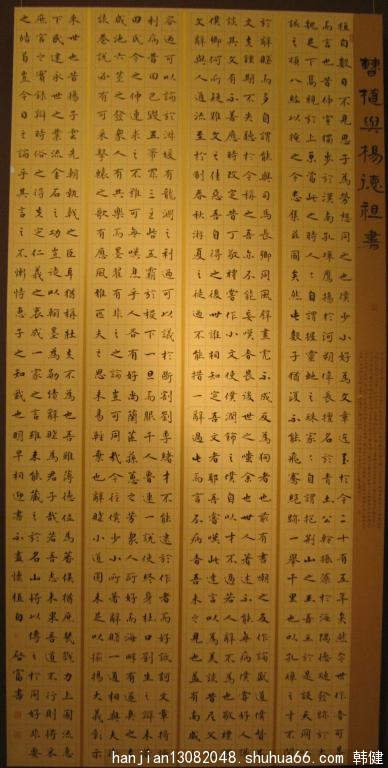 曹植與楊德祖書
植白數日不見思子為勞想同之也僕少小好為文章迄至於今二十有五年矣然今世作者可略
而言也昔仲宣獨步於漢南孔璋鷹揚於河朔偉長擅名於青土公幹振藻於海隅德璉發跡於大
魏足下高視於上京當此之時人人自謂握靈蛇之珠家家自謂抱荊山之玉吾王於是設天網以
該之頓八紘以掩之今悉集茲國矣然此數子猶復不能飛騫絕跡一舉千里也以孔璋之才不閑
於辭賦而多自謂能與司馬長卿同風譬畫虎不成反為狗者也前有書嘲之反作論盛道僕讚其
文夫鍾期不失聽於今稱之吾亦不能妄嘆者畏後世之嗤余也世人著述不能無病僕常好人譏
彈其文有不善應時改定昔丁敬禮常作小文使僕潤飾之僕自以才不過若人辭不為也敬禮謂
僕卿何所疑難文之佳惡吾自得之後世誰相知定吾文者耶吾常嘆此達言以為美談昔尼父之
文辭與人通流至於制春秋游夏之徒乃不能措一辭過此而言不病者吾未之見也蓋有南威之
容乃可以論於淑媛有龍淵之利乃可以議於斷割劉季緒才不能逮於作者而好詆訶文章掎摭
利病昔田巴毀五帝罪三王呰五霸於稷下一旦而服千人魯連一說使終身杜口劉生之辯未若
田氏今之仲連求之不難可無嘆息乎人各有好尚蘭茝蓀蕙之芳眾人所好而海畔有逐臭之夫
咸池六莖之發眾人所共樂而墨翟有非之之論豈可同哉今往僕少小所著辭賦一通相與夫街
談巷說必有可采擊轅之歌有應風雅匹夫之思未易輕棄也辭賦小道固未足以揄揚大義彰示
來世也昔揚子雲先朝執戟之臣耳猶稱壯夫不為也吾雖薄德位為蕃侯猶庶幾戮力上國流惠
下民建永世之業流金石之功豈徒以翰墨為勳績辭賦為君子哉若吾志未果吾道不行則將采
庶官之實錄辯時俗之得失定仁義之衷成一家之言雖未能藏之於名山將以傳之於同好非要
之皓首豈今日之論乎其言之不慚恃惠子之知我也明早相迎書不盡懷植白 啓富書
hanjian13082048.shuhua66.com 韩健